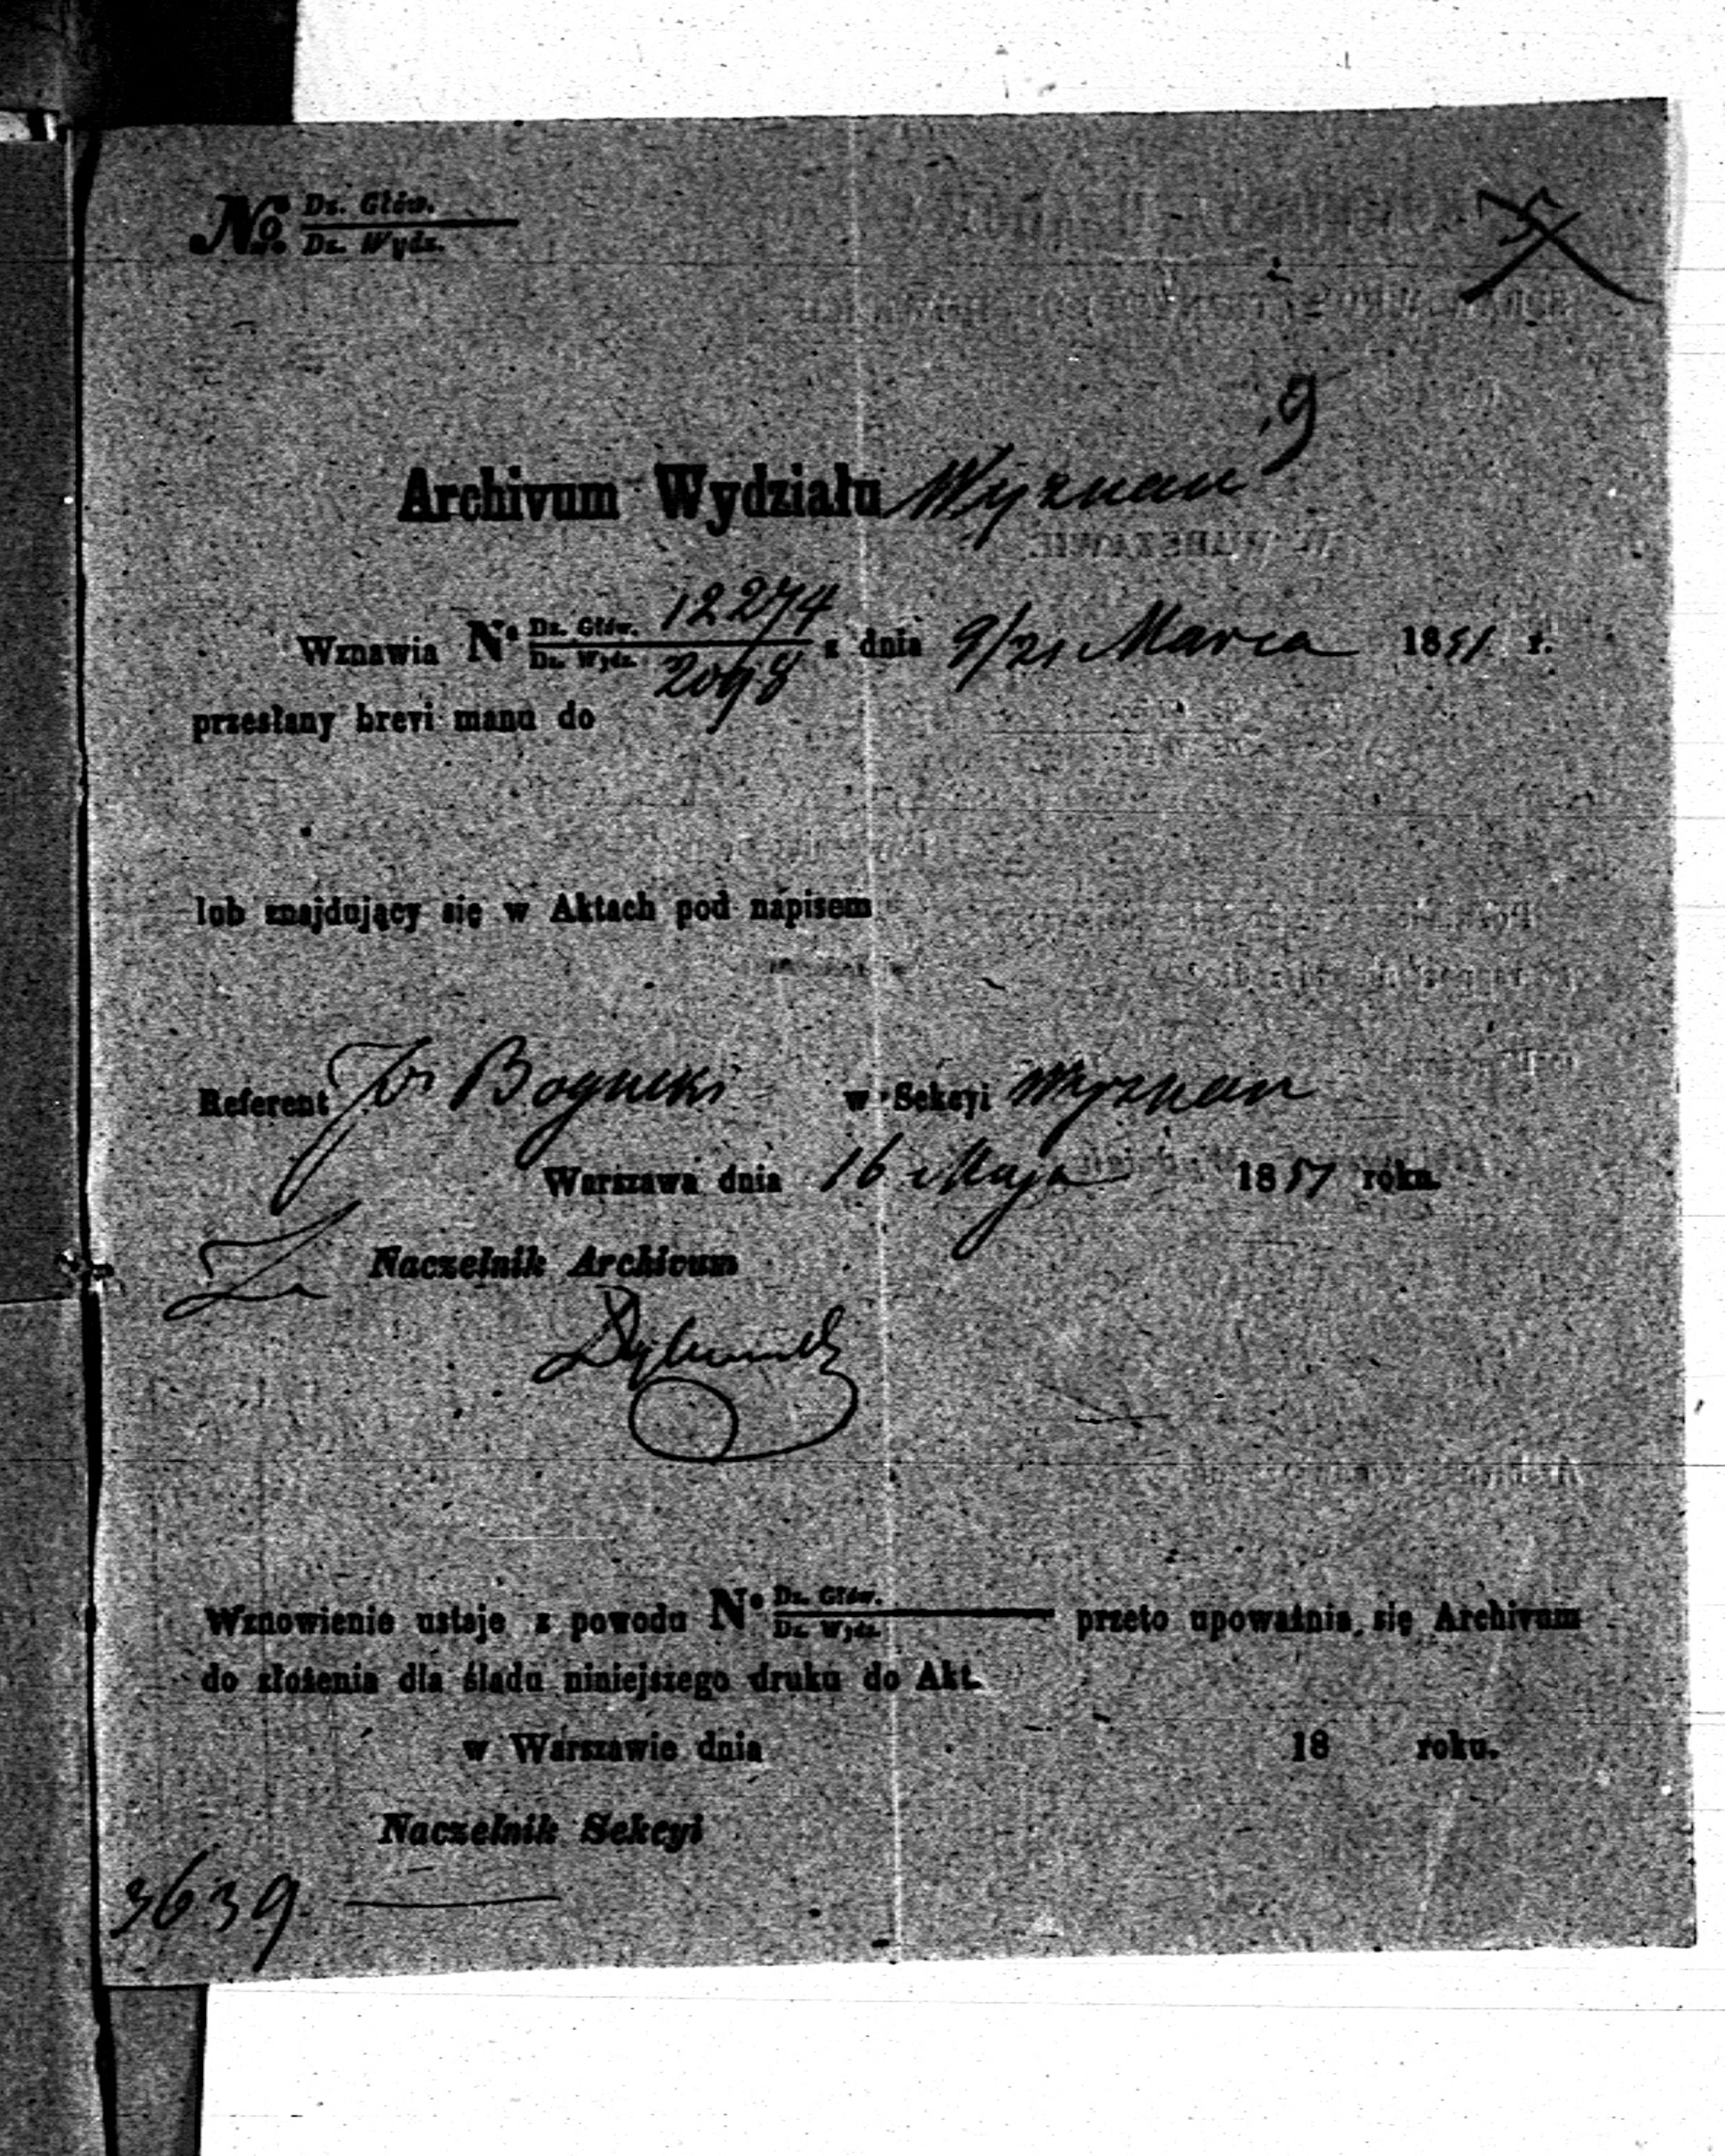 No. Dz. Głów.
Dz. Wydz.
9
Archivum Wydziału Wyznań
Wznawia N° Dz. Głów. 12274 z dnia 9/21 Marca 1851 r.
Dz. Wydz. 2098
przesłany brevi manu do
lub znajdujący się w Aktach pod napisem
Referent Bogucki w Sekcyi Wyznań
Warszawa dnia 16 Maja 1851 roku.
Za Naczelnik Archivum
Wznowienie ustaje z powodu N° Dz. Głów. przeto upoważnia się Archivum
Dz. Wydz.
do złożenia dla śladu niniejszego druku do Akt.
w Warszawie dnia 18 roku.
Naczelnik Sekcyi
3639.